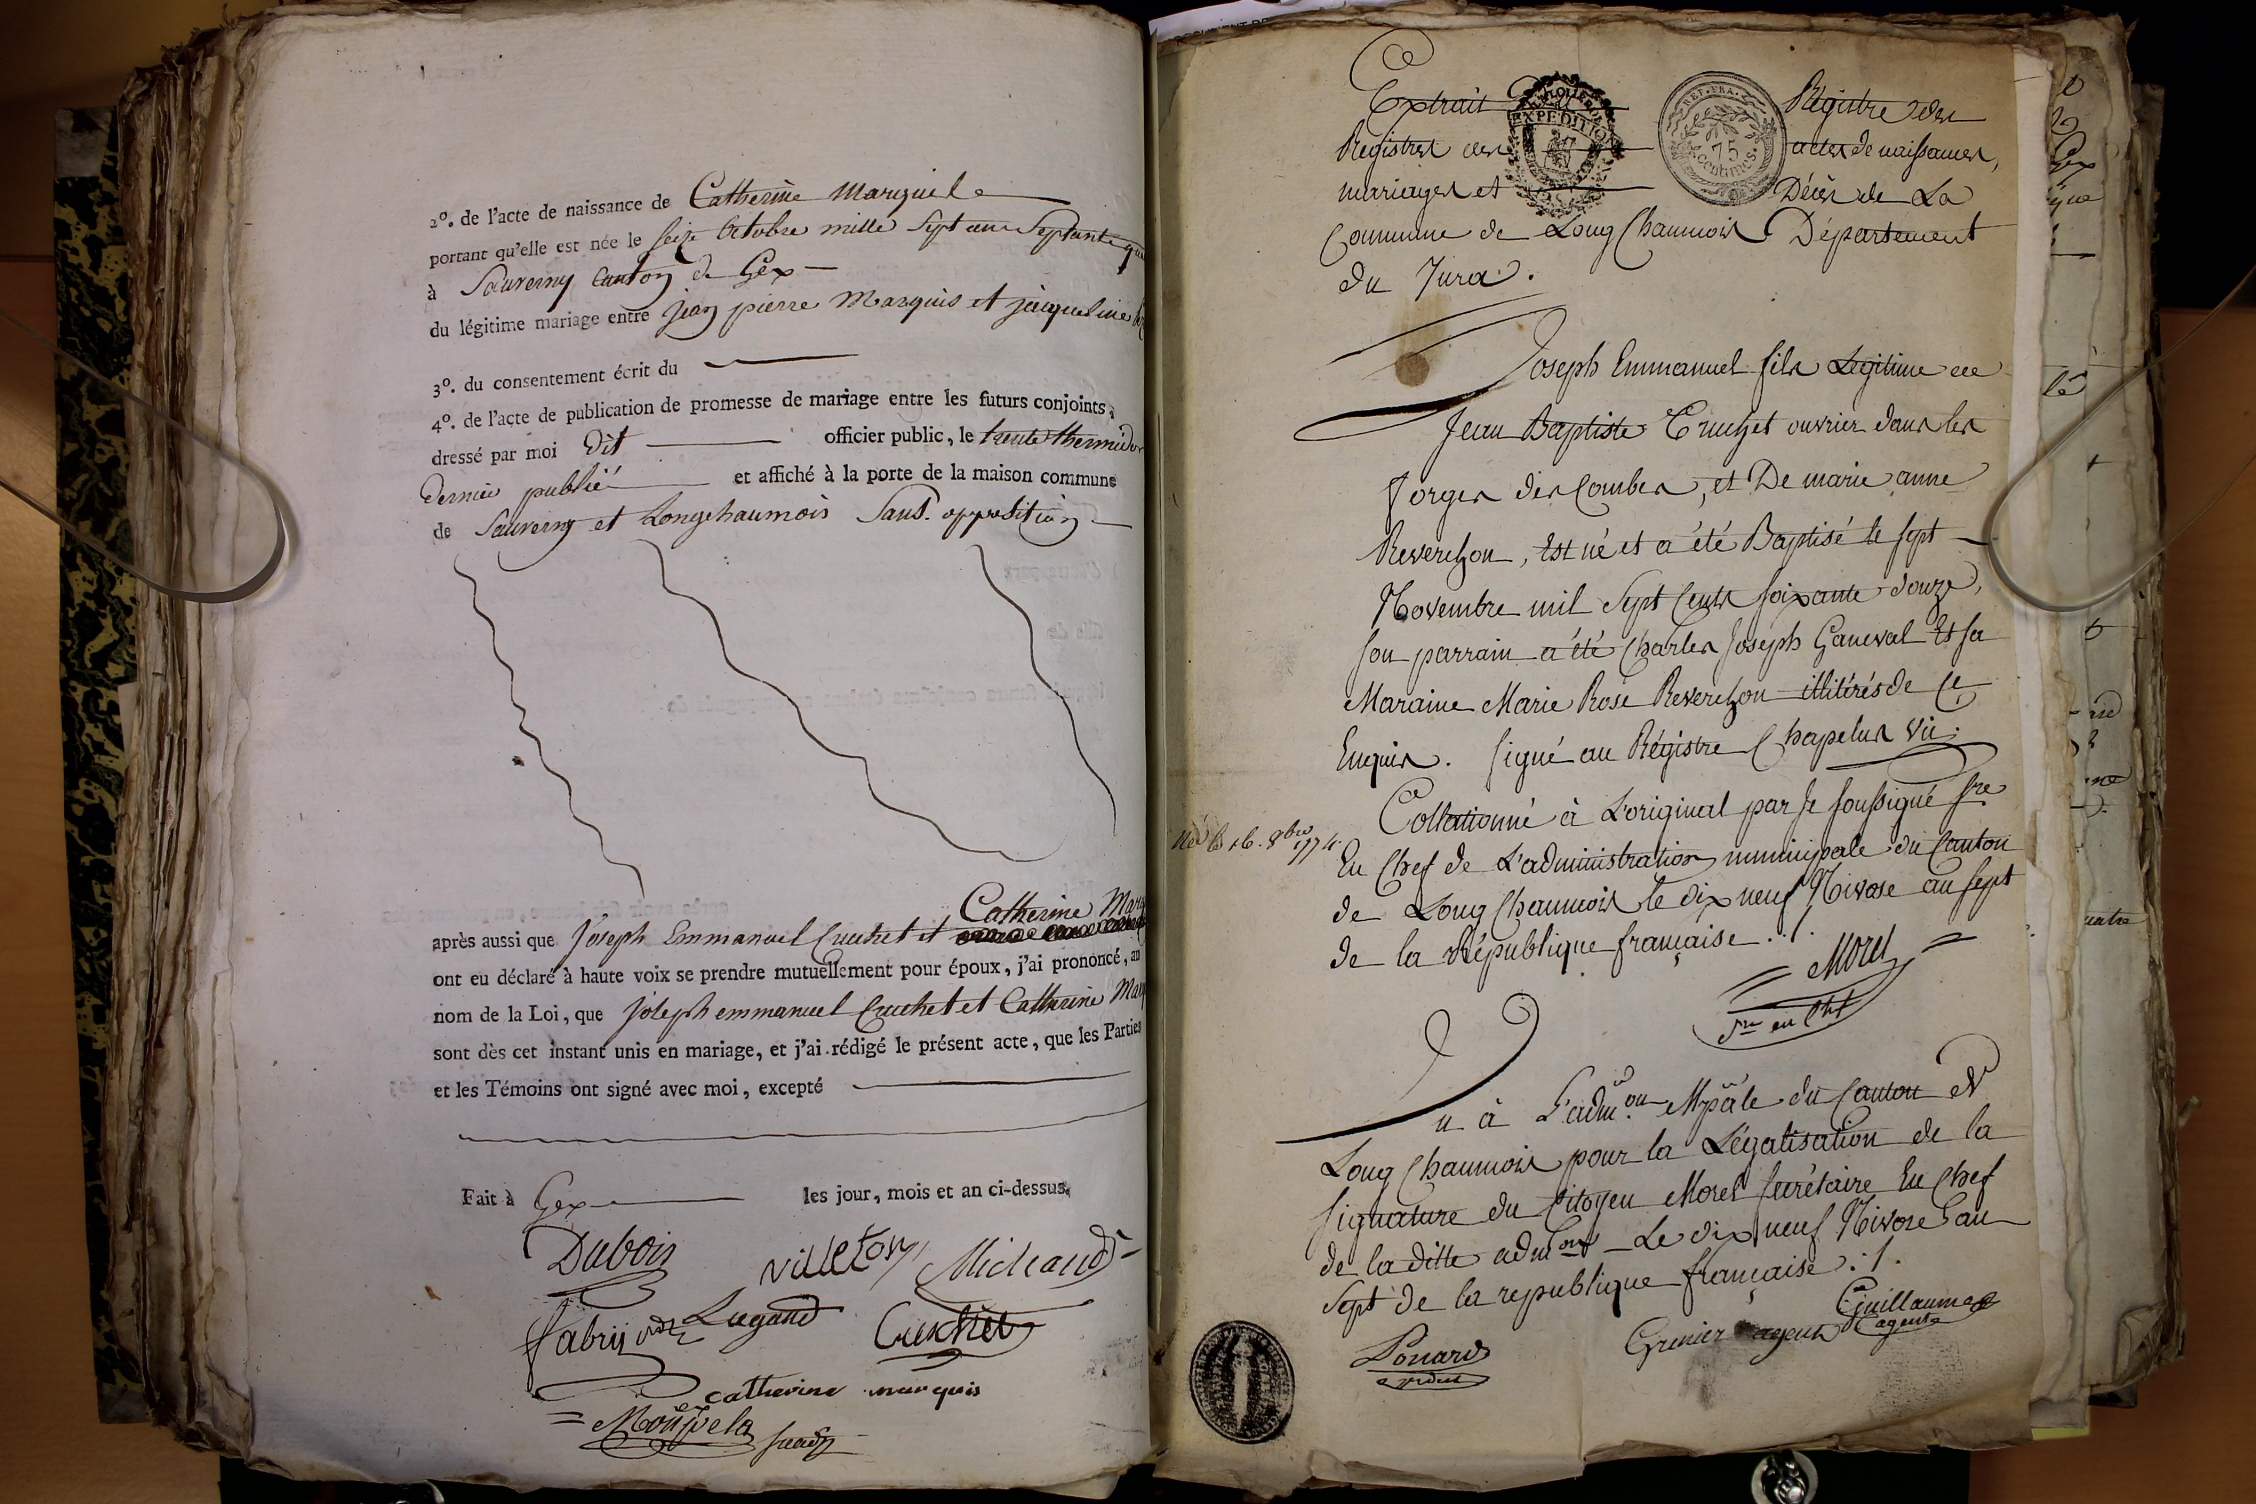 2º. de l'acte de naissance de Catherine Marquis
portant qu'elle est née le seize Octobre mille Sept cent Septante
à Sauverny Canton de Gex
du légitime mariage entre jean pierre Marquis et jacqueline
3º. du consentement écrit du
4º. de l'acte de publication de promesse de mariage entre les futurs conjoints,
dressé par moi Dit officier public, le trente thermidor
dernier publié et affiché à la porte de la maison commune
de Sauverny et Longchaumois Sans opposition
Catherine
après aussi que Joseph Emmanuel Cruchet et
ont eu déclaré à haute voix se prendre mutuellement pour époux, j'ai prononcé, au
nom de la Loi, que joseph emmanuel Cruchet et Catherine
sont dès cet instant unis en mariage, et j'ai rédigé le présent acte, que les Parties
et les Témoins ont signé avec moi, excepté
Fait à Gex les jour, mois et an ci-dessus.
Dubois Villeton Michaud
Fabry Lugand Cruchet
catherine marquis
Extrait Registre des
Registres des actes de naissances,
mariages et Décès de La
Commune de Long Chaumois Département
du Jura.
EXPEDITION
REP. FRA.
75
centimes.
Joseph Emmanuel fils Legitime de
Jean Baptiste Cruchet ouvrier dans les
forges des Combes, et De marie anne
Reverchon, Est né et a été Baptisé le sept
Novembre mil Sept Cents soixante douze,
son parrain a été Charles Joseph Ganeval Et sa
Maraine Marie Rose Reverchon illitérés de ce
Enquis. signé au Régistre Chapelus vic.
Collationné à L'original par Je soussigné sre
née le 16. 8bre 1774.
En Chef de L'administration municipale du Canton
de Long Chaumois le dix neuf Nivose an sept
de la République française ./.
Morel
sre en Chef
Vu à L'admon. Mpale du Canton De
Long Chaumois pour la Légalisation de la
signature du Citoyen Morel secrétaire En Chef
de la ditte admon Le dix neuf Nivose L'an
Sept de la republique française ./.
Guillaume
agent
Grenier agent
Ponard